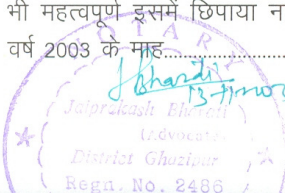 भी महत्वपूर्ण इसमें छिपाया न
वर्ष 2003 के माह....................
NOTARY
Jaiprakash Bharati
(Advocate)
District Ghazipur
Regn. No. 2486